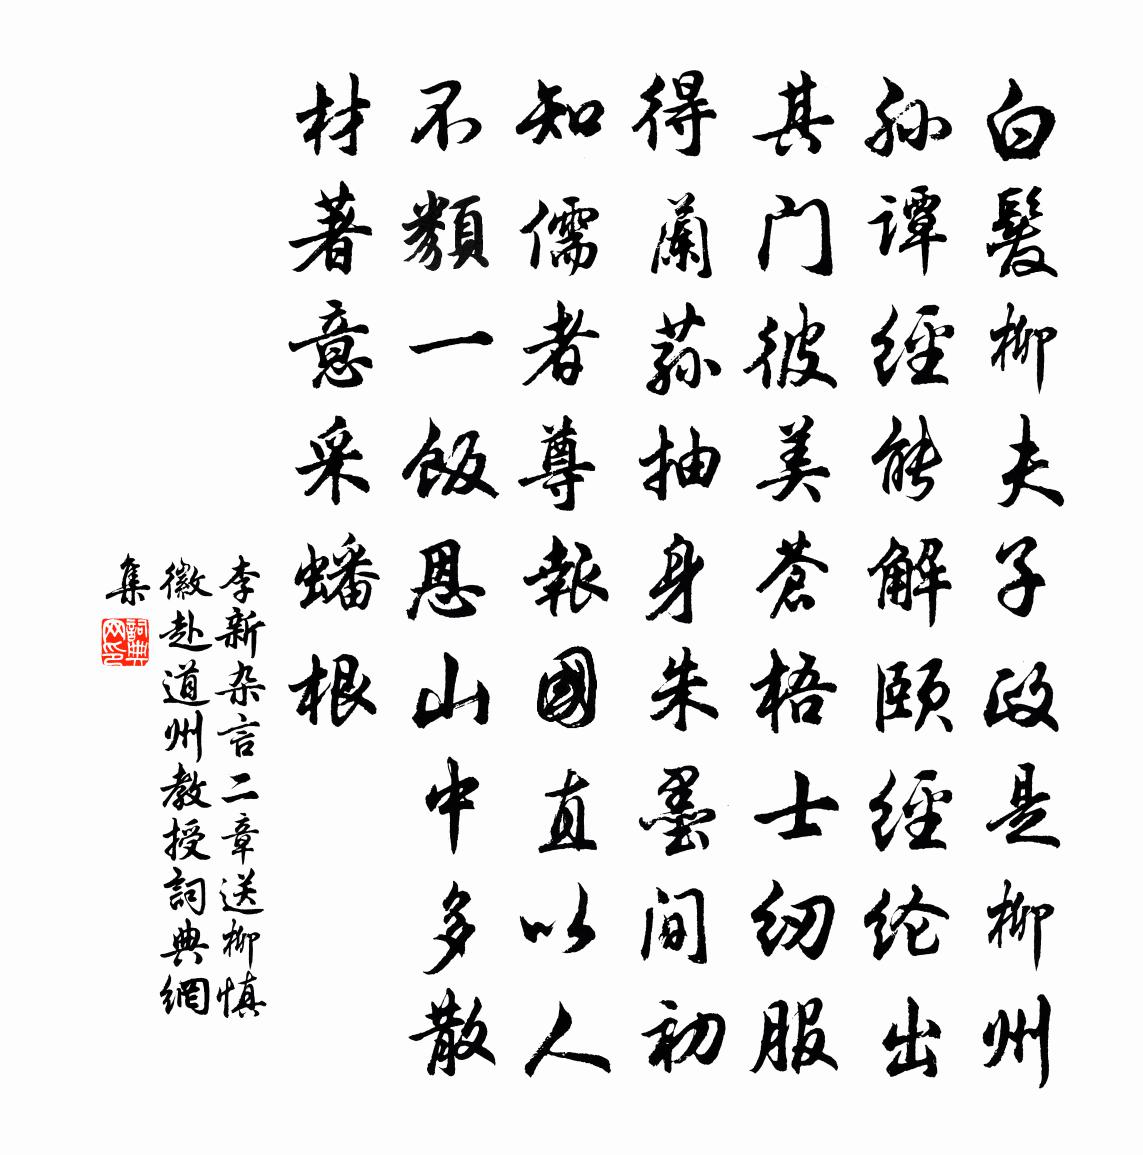 白髮柳夫子政是柳州
孙谭經能解頤經纶出
其门彼美蒼梧士纫服
得蘭荪抽身朱墨间初
知儒者尊報國直以人
不類一飯恩山中多散
材著意采蟠根
李新杂言二章送柳慎
徽赴道州教授詞典網
集
詞典
网印